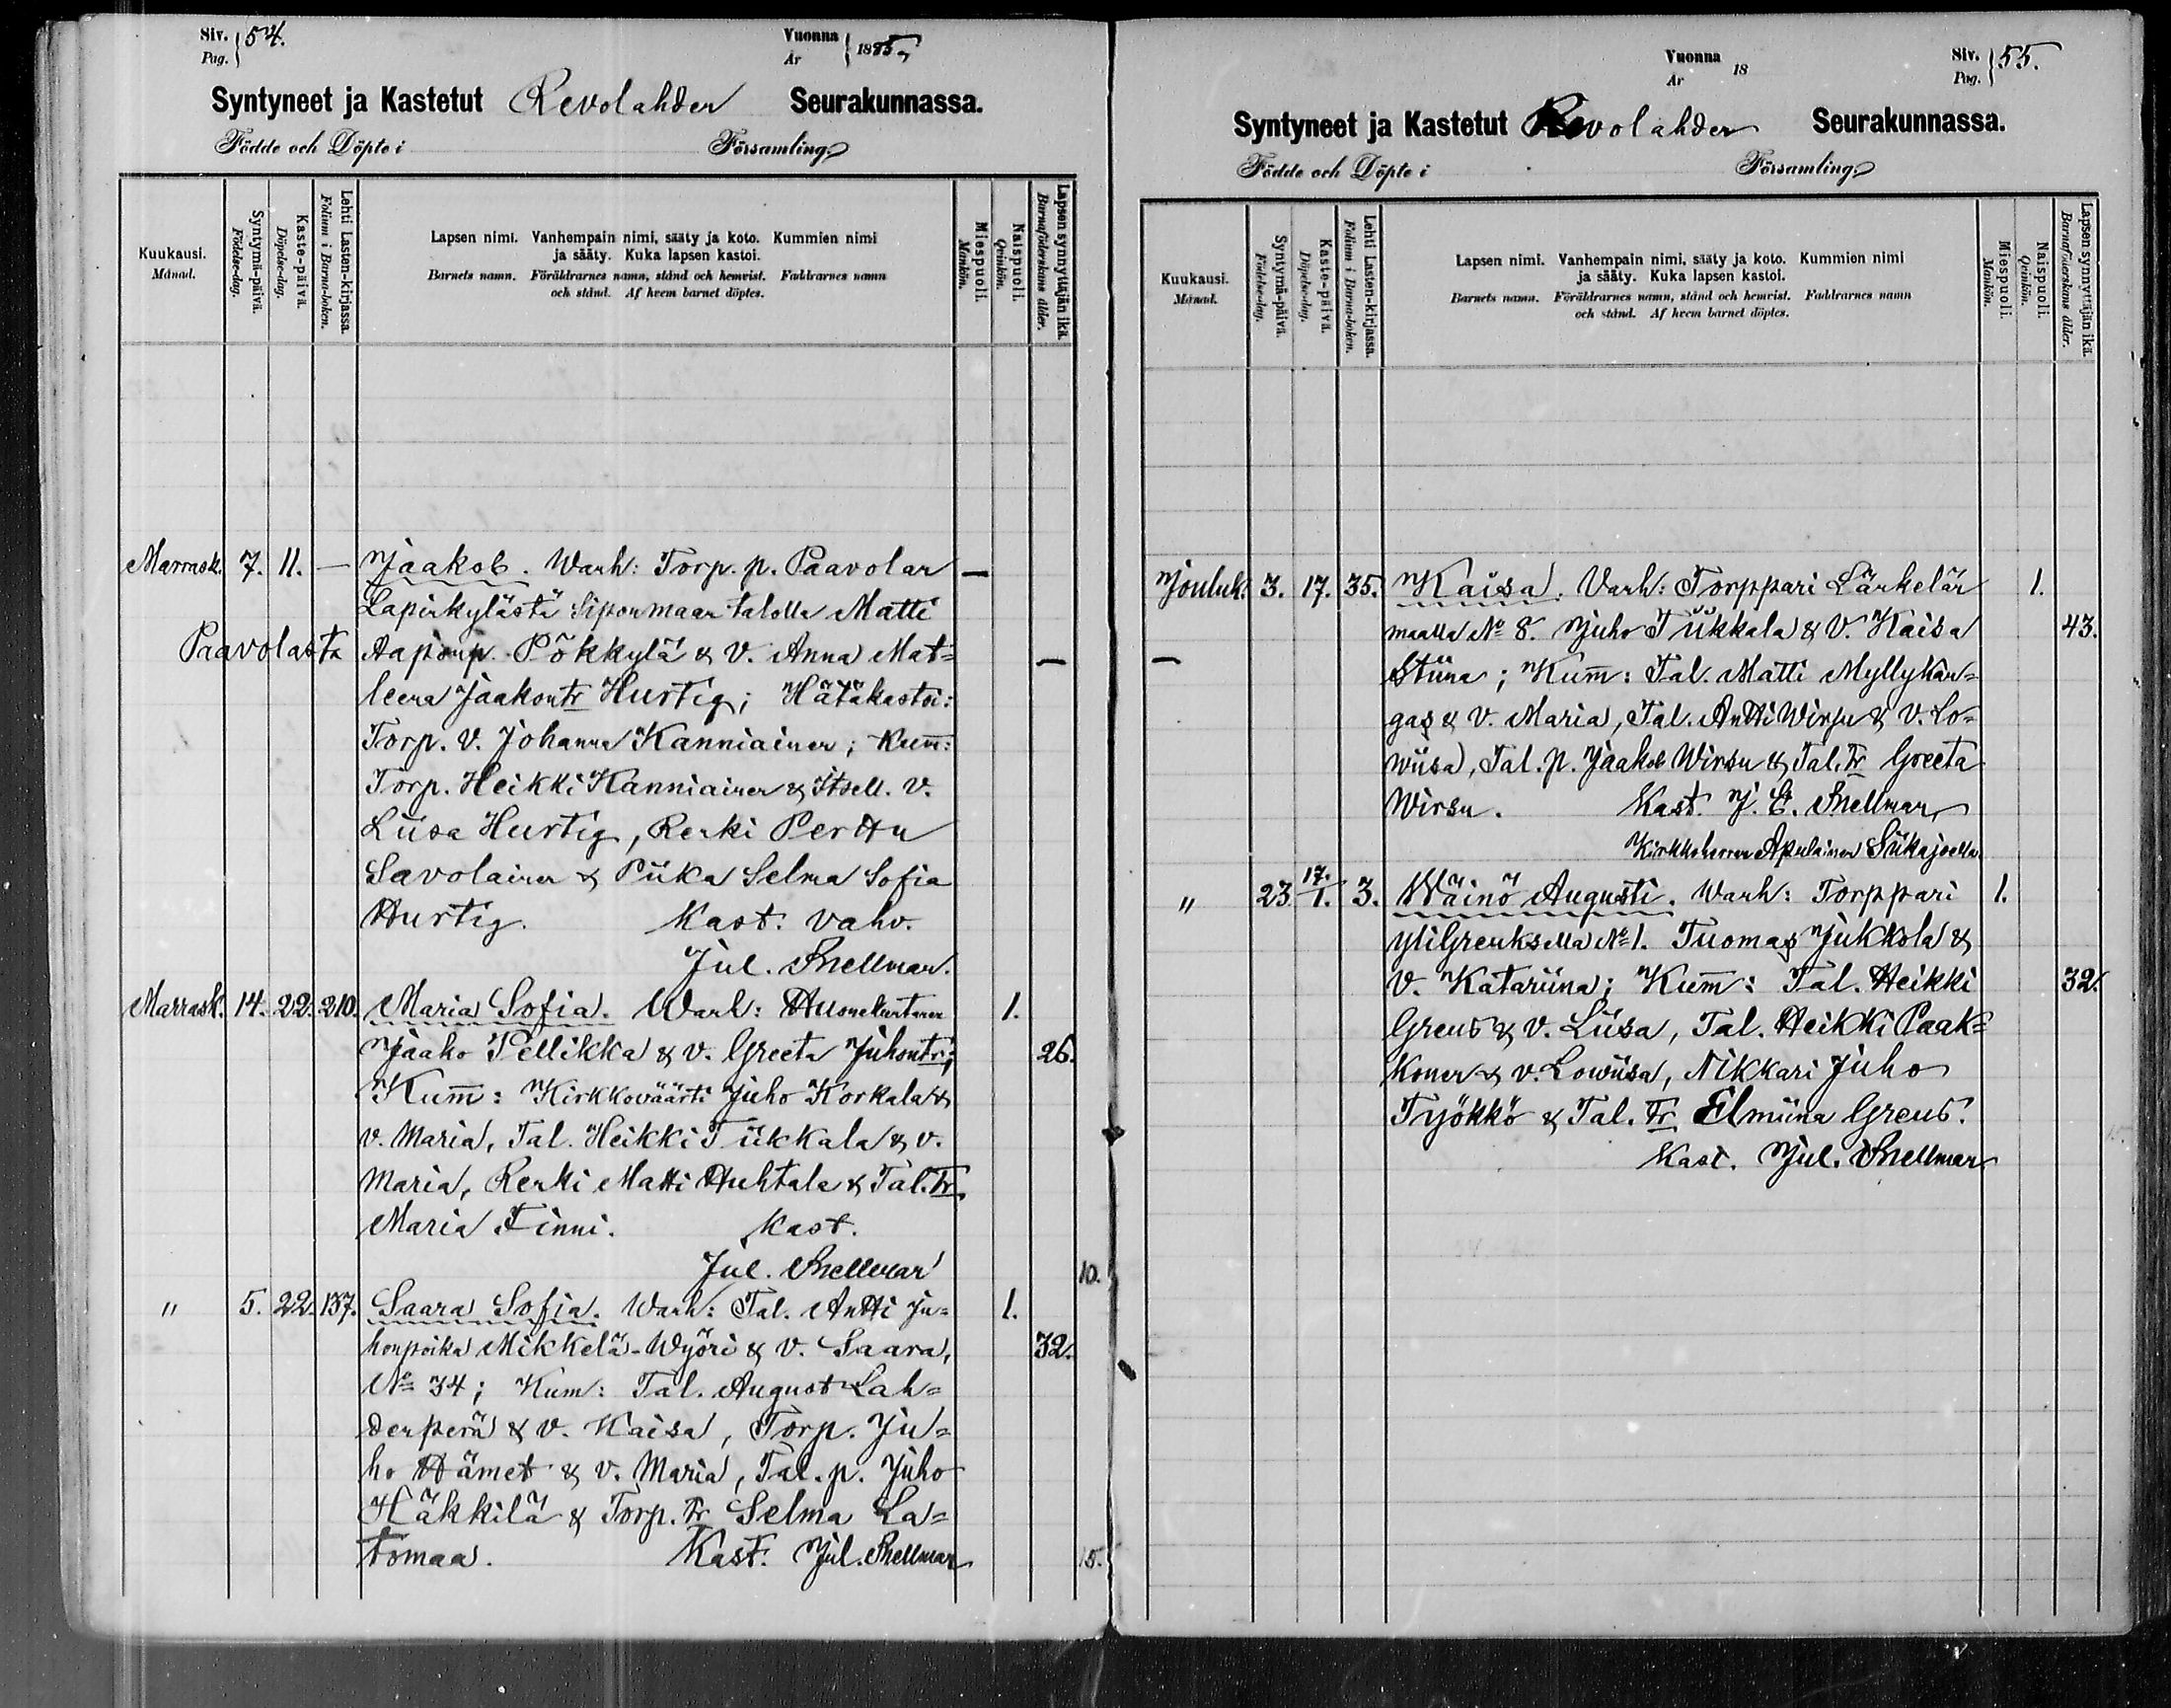 Siv. Pag. 54.
Vuonna År 1885,
Syntyneet ja Kastetut Revolahden Seurakunnassa.
Födde och Döpte i Församling
Kuukausi. Månad.
Syntymä-päivä. Födelse-dag.
Kaste-päivä. Döpelse-dag.
Lehti Lasten-kirjassa. Folium i Barna-boken.
Lapsen nimi. Vanhempain nimi, sääty ja koto. Kummien nimi
ja sääty. Kuka lapsen kastoi.
Barnets namn. Föräldrarnes namn, stånd och hemvist. Faddrarnes namn
och stånd. Af hvem barnet döptes.
Miespuoli. Mankön.
Naispuoli. Qvinkön.
Lapsen synnyttäjän ikä. Barnaföderskans ålder.
Marrask. 7. 11. — Jaakob. Wanh: Torp. p. Paavolan —
Lapinkylästä Siponmaan talolla Matti
Paavolasta Aaponp. Pökkylä & V. Anna Mat= —
leena Jaakontr Hurtig; Hätäkastoi:
Torp. V. Johanna Kanniainen; Kum̄:
Torp. Heikki Kanniainen & Itsell. V.
Liisa Hurtig, Renki Perttu
Savolainen & Piika Selma Sofia
Hurtig. Kast. vahv.
Jul. Snellman.
Marrask. 14. 22. 210. Maria Sofia. Wanh: Huonekuntanen 1.
Jaako Pellikka & v. Greeta Juhontr; 26.
Kum̄: Kirkkoväärti Juho Korkala &
v. Maria, Tal. Heikki Tiikkala & v.
Maria, Renki Matti Huhtala & Tal. Tr
Maria Finni. Kast.
Jul. Snellman
10.
" 5. 22. 137. Saara Sofia. Wanh: Tal. Antti Ju= 1.
honpoika Mikkelä-Wyöri & V. Saara, 32.
No 34; Kum: Tal. August Lah=
denperä & v. Kaisa, Torp. Ju=
ho Hämet & v. Maria, Tal. p. Juho
Häkkilä & Torp. Tr Selma La=
tomaa. Kast. Jul. Snellman
15.
Vuonna År 18
Siv. Pag. 55.
Syntyneet ja Kastetut Revolahden Seurakunnassa.
Födde och Döpte i Församling
Kuukausi. Månad.
Syntymä-päivä. Födelse-dag.
Kaste-päivä. Döpelse-dag.
Lehti Lasten-kirjassa. Folium i Barna-boken.
Lapsen nimi. Vanhempain nimi, sääty ja koto. Kummien nimi
ja sääty. Kuka lapsen kastoi.
Barnets namn. Föräldrarnes namn, stånd och hemvist. Faddrarnes namn
och stånd. Af hvem barnet döptes.
Miespuoli. Mankön.
Naispuoli. Qvinkön.
Lapsen synnyttäjän ikä. Barnaföderskans ålder.
Jouluk. 3. 17. 35. Kaisa. Vanh: Torppari Lärkelän 1.
maalla No 8. Juho Tiikkala & V. Kaisa 43.
— Stiina; Kum̄: Tal. Matti Myllykan=
gas & V. Maria, Tal. Antti Wirsu & V. Lo=
wiisa, Tal. p. Jaakob Wirsu & Tal. Tr Greeta
Wirsu. Kast. J. E. Snellman,
Kirkkoherran Apulainen Siikajoella.
" 23 17./1. 3. Wäinö Augusti. Wanh: Torppari 1.
yliGreuksella No 1. Tuomas Jukkola &
V. Katariina; Kum̄: Tal. Heikki 32.
Greus & V. Liisa, Tal. Heikki Paak=
konen & v. Lowiisa, Nikkari Juho
Työkkö & Tal. Tr Elmiina Greus.
Kast. Jul. Snellman